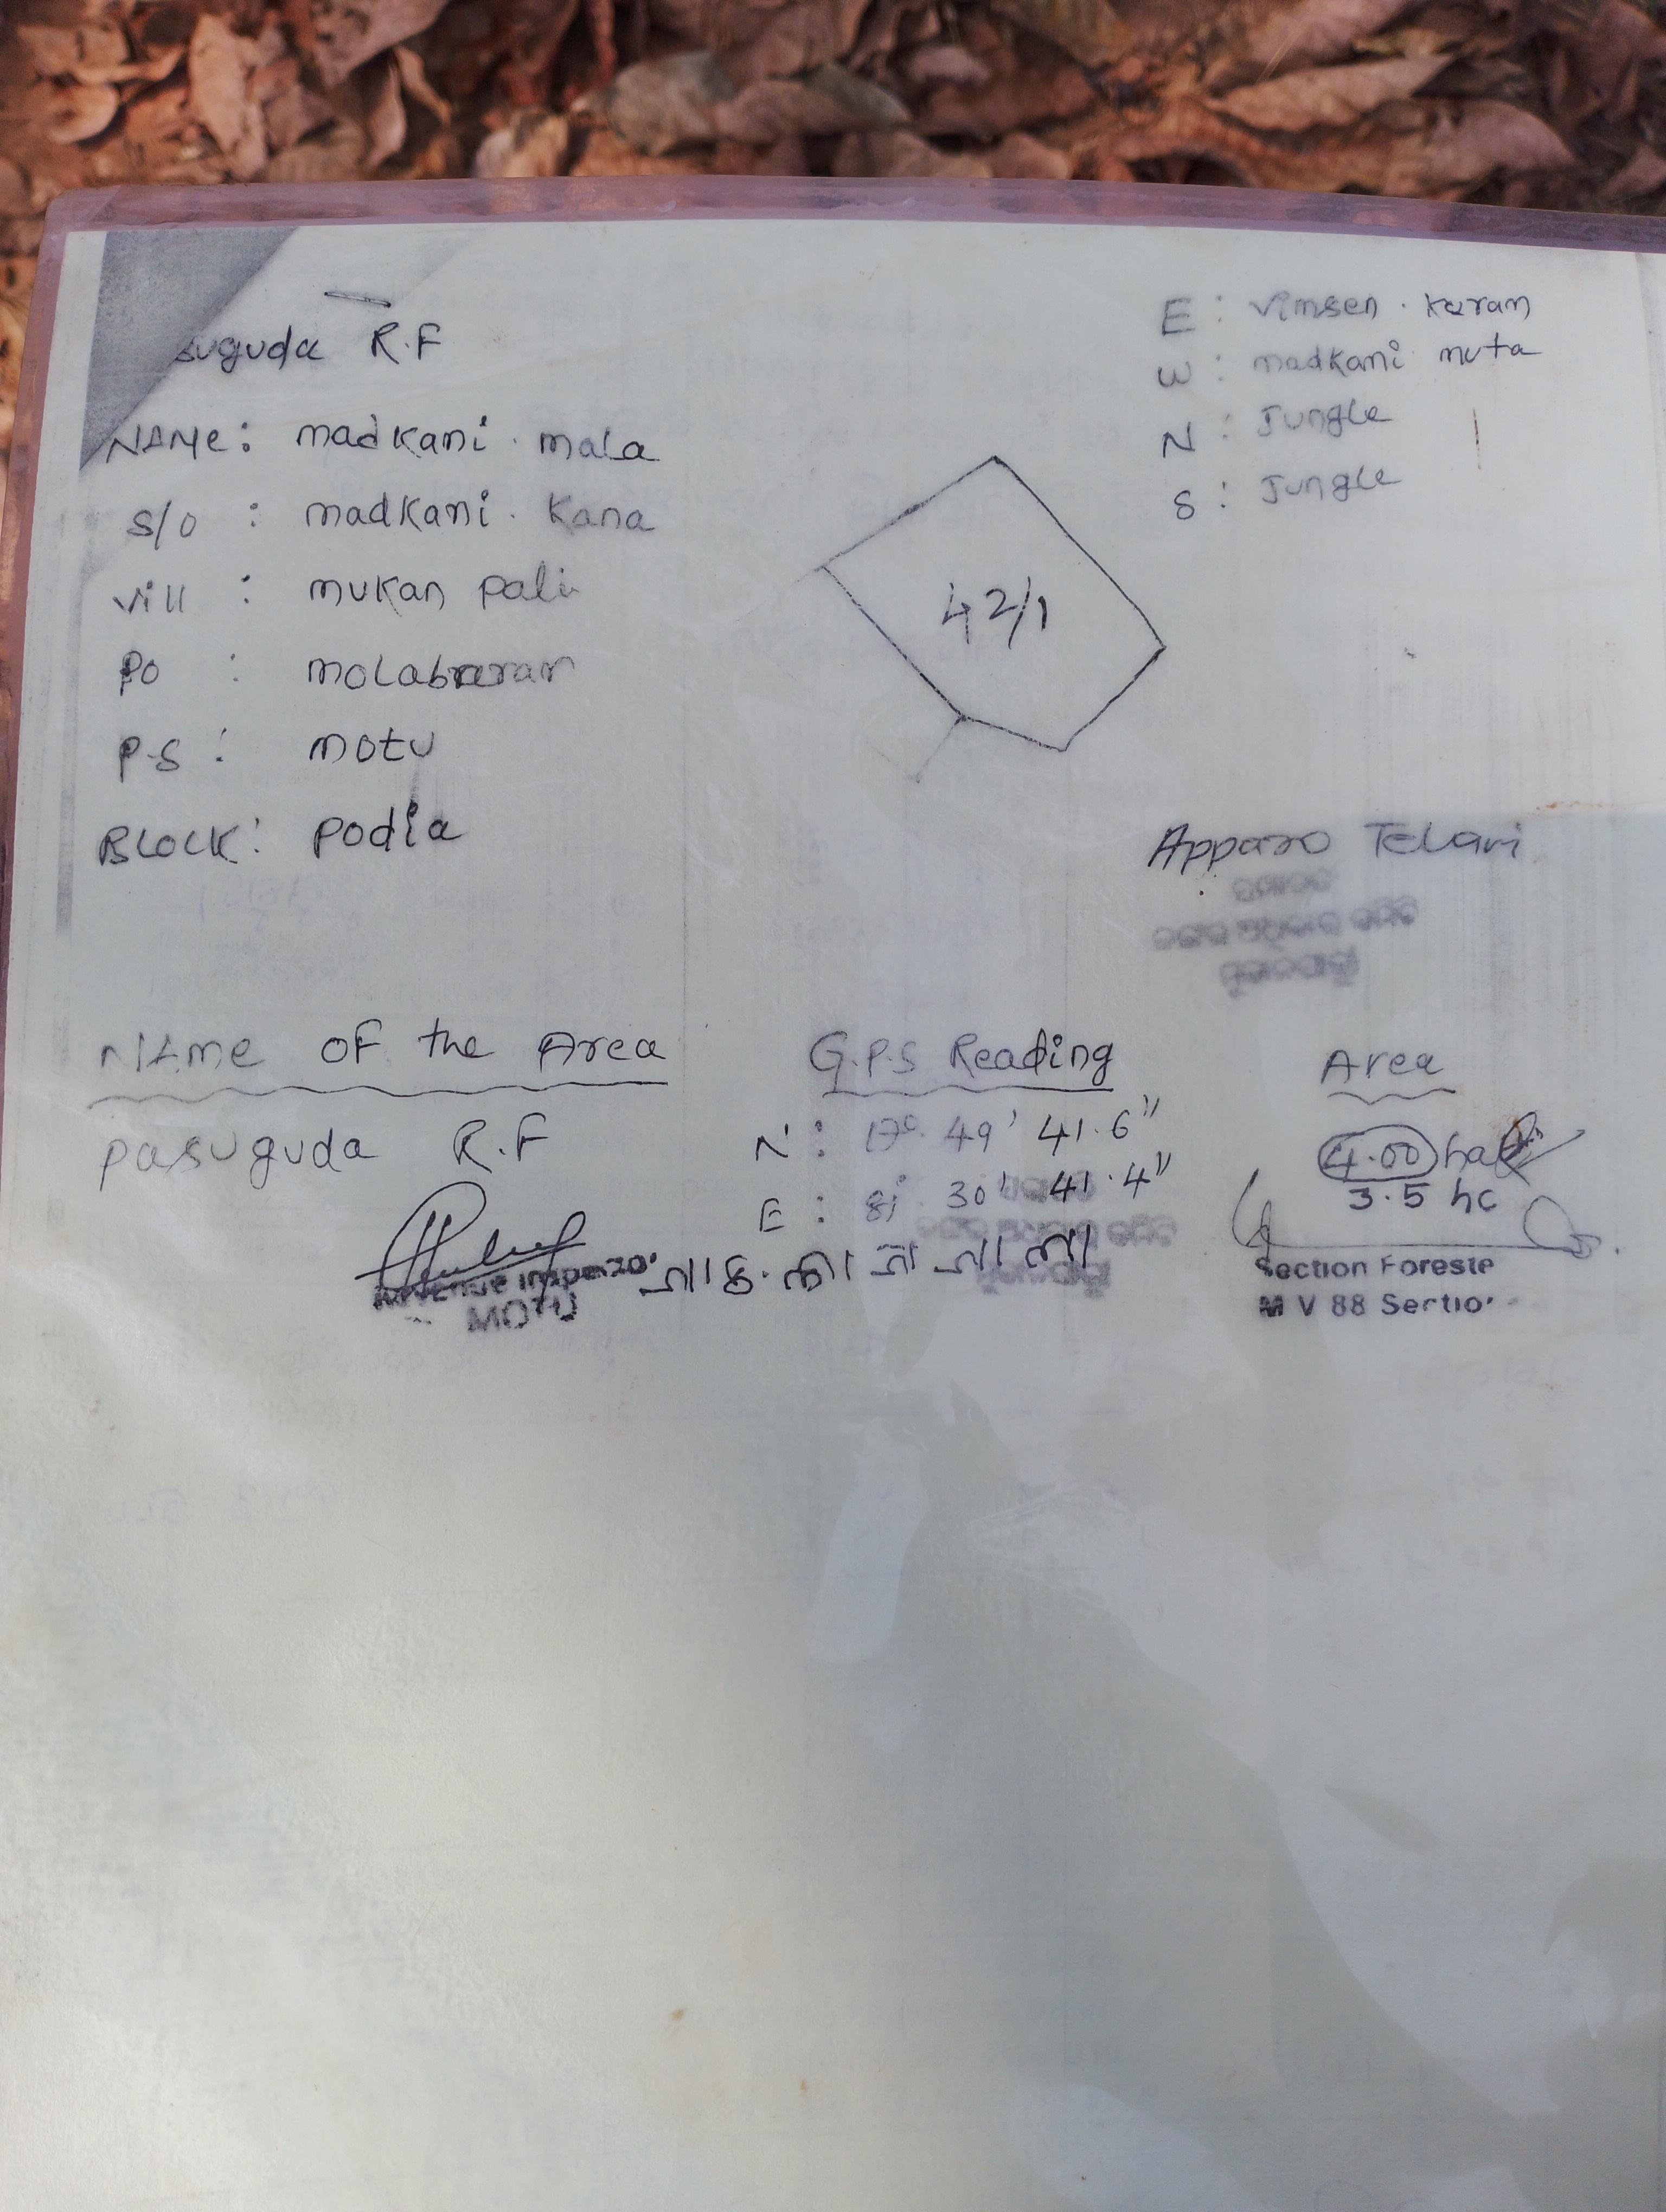 suguda R.F
NAMe: madkani mala
S/o : madkani kana
vill : mukan pali
Po :
P.S : motu
BLOCK: podia
E : vimsen karam
W : madkami muta
N : Jungle
S : Jungle
42/1
Apparao Telami
NAme OF the Area
pasuguda R.F
G.P.S Reading
N : 17° 49' 41.6"
E : 81° 30' 41.4"
Area
4.00 ha
3.5 hc
MOTU
Section Foreste
M V 88 Sectio